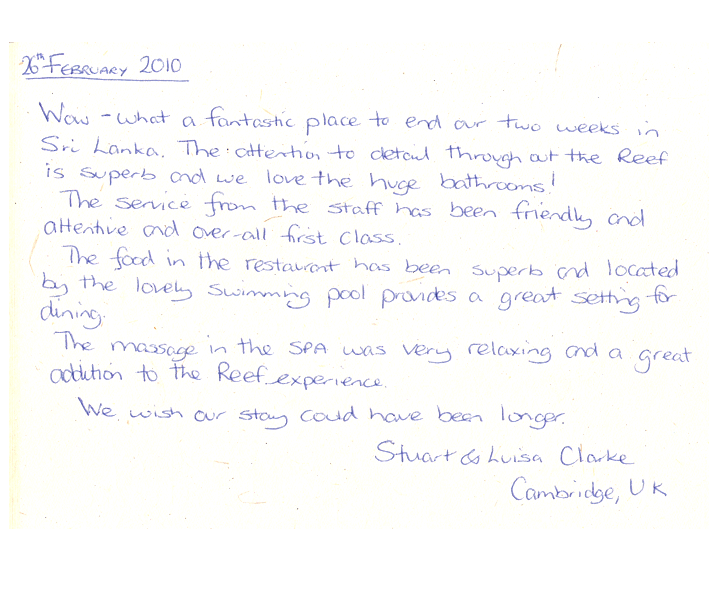 26th FEBRUARY 2010
Wow - what a fantastic place to end our two weeks in
Sri Lanka. The attention to detail through out the Reef
is superb and we love the huge bathrooms!
The service from the staff has been friendly and
attentive and over-all first class.
The food in the restaurant has been superb and located
by the lovely swimming pool provides a great setting for
dining.
The massage in the SPA was very relaxing and a great
addition to the Reef experience.
We wish our stay could have been longer.
Stuart & Luisa Clarke
Cambridge, UK